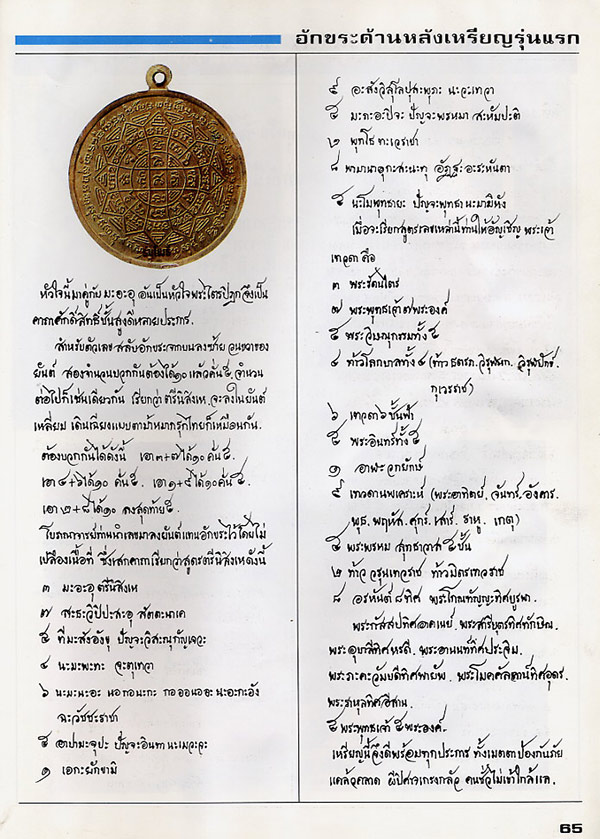 อักขระด้านหลังเหรียญรุ่นแรก
หัวใจนี้มาคู่กับ มะอะอุ อันเป็นหัวใจพระไตรปิฎก จึงเป็น
คาถาศักดิ์สิทธิ์ชั้นสูงดีหลายประการ.
สำหรับตัวเลข สลับอักขระจากบนลงซ้าย วนขวาของ
ยันต์ สองจำนวนบวกกันต้องได้๑๐ แล้วคั่น๕. จำนวน
ต่อไปก็เช่นเดียวกัน เรียกว่า ตรีนิสิงเห. จะลงในยันต์
เหลี่ยม เดินเฉียงแบบตาม้าหมากรุกไทยก็เหมือนกัน.
ต้องบวกกันได้ดังนี้ เอา๓+๗ได้๑๐ คั่น๕.
เอา๔+๖ได้๑๐ คั่น๕. เอา๑+๙ได้๑๐คั่น๕.
เอา๒+๘ได้๑๐ ลงสุดท้าย๕.
โบราณาจารย์ท่านนำเลขมาลงยันต์แทนอักขระไว้โดยไม่
เปลืองเนื้อที่ ซึ่งสกาถาเรียกว่าสูตรตรีนิสิงเหดังนี้
๓ มะอะอุ ตรีนิสิงเห
๗ สะธะวิปิปะสะอุ สัตตะนาเค
๕ ที่มะสังอังขุ ปัญจะวิสะณุกัญเจวะ
๔ นะมะพะทะ จะตุเทวา
๖ นะมะนะอะ นอกอนะกะ กอออนออะ นะอะกะอัง
ฉะวัชชะราชา
๕ อาปามะจุปะ ปัญจะอินทา นะเมวะจะ
๑ เอกะยักขามิ
๙ อะสังวิสุโลปุสะพุภะ นะวะเทวา
๕ มะทะอะปิจะ ปัญจะพรหมา สะหัมปะติ
๒ พุทโธ ทะเวราชา
๘ พามานาอุกะสะนะทุ อัฏฐะอะระหันตา
๕ นะโมพุทธายะ ปัญจะพุทธา นะมามิหัง
เมื่อจะเรียกสูตรเลขเหล่านี้ท่านให้อัญเชิญ พระเจ้า
เทวดา คือ
๓ พระรัตนไตร
๗ พระพุทธเจ้า๗พระองค์
๕ พระวิษณุกรรมทั้ง๕
๔ ท้าวโลกบาลทั้ง๔ (ท้าวธตรฏ. วิรุฬหก. วิรูปักษ์.
กุเวรราช)
๖ เทวดา๖ชั้นฟ้า
๕ พระอินทร์ทั้ง๕
๑ อาฬะวกยักษ์
๙ เทวดานพเคราะห์ (พระอาทิตย์. จันทร์. อังคาร.
พุธ. พฤหัส. ศุกร์. เสาร์. ราหู. เกตุ)
๕ พระพรหม สุทธาวาส ๕ชั้น
๒ ท้าว วรุนเทวราช ท้าวมิตรเทวราช
๘ อรหันต์๘ทิศ พระโกณทัญญะทิศบูรพา.
พระกัสสปทิศอาคเนย์. พระสารีบุตรทิศทักษิณ.
พระอุบาลีทิศหรดี. พระอานนท์ทิศประจิม.
พระภะคะวัมบดีทิศพายัพ. พระโมคคัลลาน์ทิศอุดร.
พระราหุลทิศอีสาน.
๕ พระพุทธเจ้า ๕พระองค์.
เหรียญนี้จึงดีพร้อมทุกประการ ทั้งเมตตาป้องกันภัย
แคล้วคลาด ผีปีศาจเกรงกลัว คนชั่วไม่เข้าใกล้แล.
65